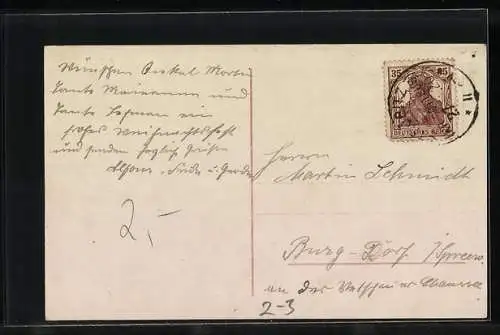 Wünschen Onkel Martin
Tante Marianne und
Tante Lehmann ein
frohes Weihnachtsfest
und senden herzliche Grüße
und Gerda
2,-
35 35
DEUTSCHES REICH
Herrn
Martin Schmidt
Burg-Dorf /Spreew.
an der
2-3